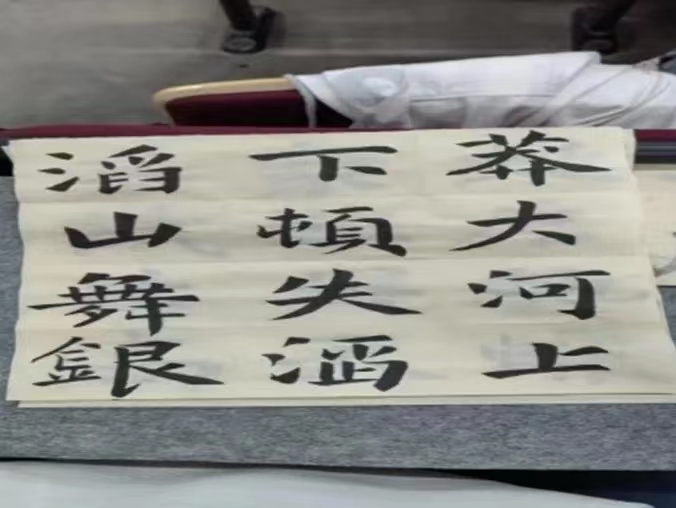 莽大河上
下頓失滔
滔山舞銀